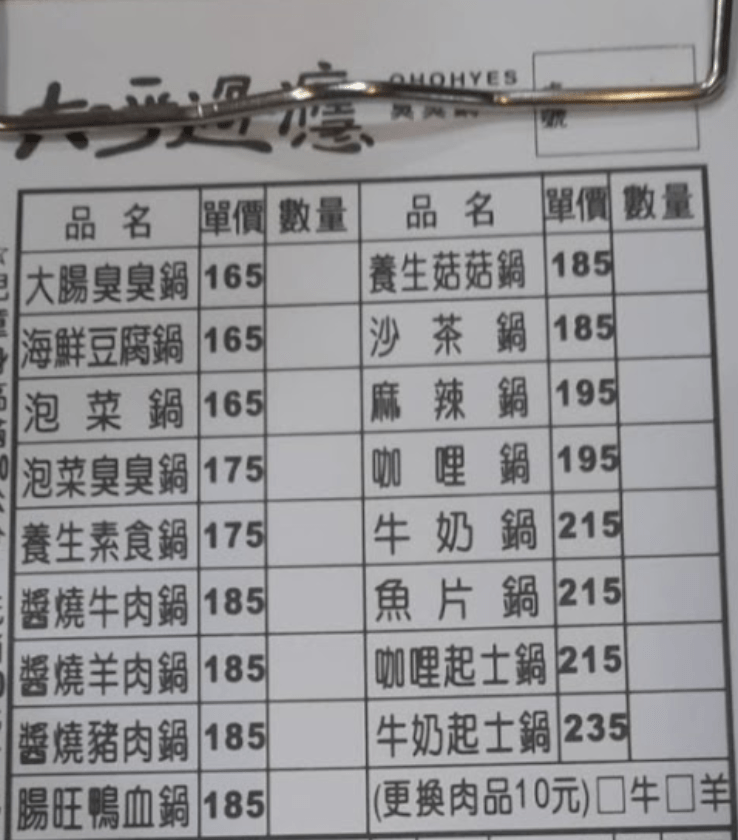 大呼過癮
OHOHYES
號
品名 單價 數量 品名 單價 數量
大腸臭臭鍋 165 養生菇菇鍋 185
海鮮豆腐鍋 165 沙茶鍋 185
泡菜鍋 165 麻辣鍋 195
泡菜臭臭鍋 175 咖哩鍋 195
養生素食鍋 175 牛奶鍋 215
醬燒牛肉鍋 185 魚片鍋 215
醬燒羊肉鍋 185 咖哩起士鍋 215
醬燒豬肉鍋 185 牛奶起士鍋 235
腸旺鴨血鍋 185 (更換肉品10元)□牛□羊